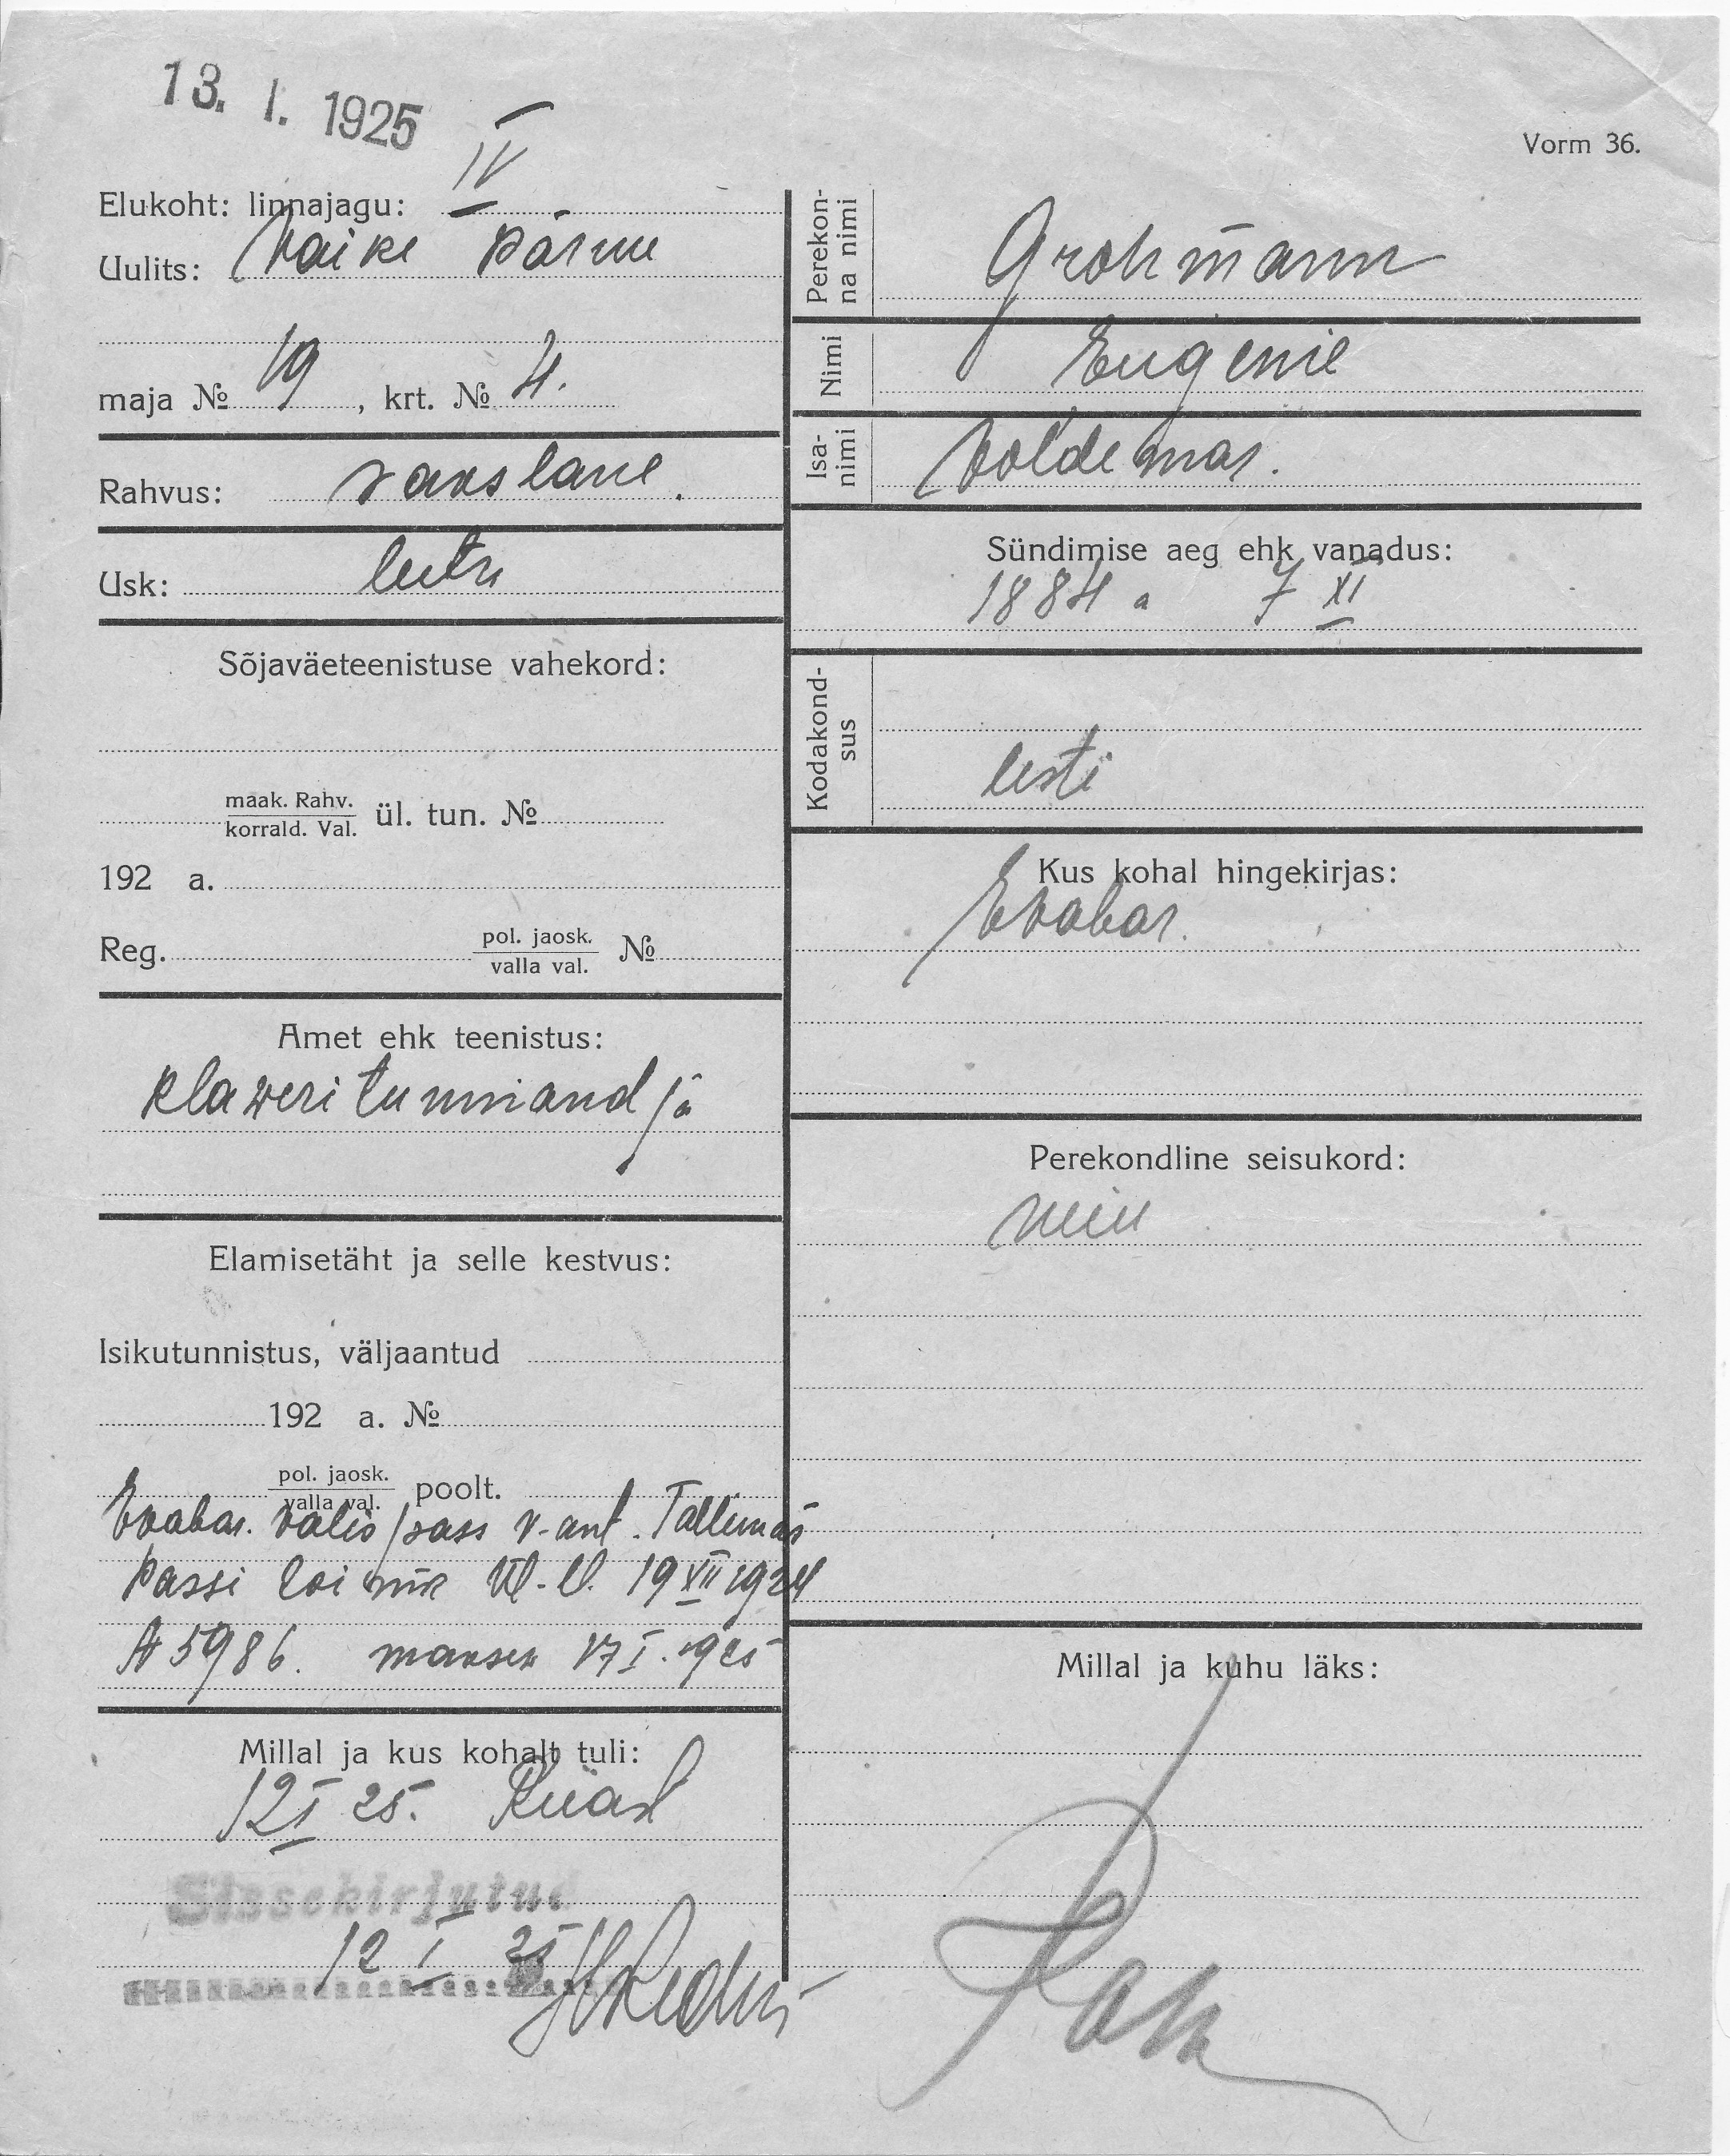 13. I. 1925
IV
Vorm 36.
Elukoht: linnajagu:
Uulits: Väike Pärnu
maja № 19, krt. № 4.
Rahvus: sakslane.
Usk: lutru
Sõjaväeteenistuse vahekord:
maak. Rahv.
korrald. Val. ül. tun. №
192 a.
Reg. pol. jaosk.
valla val. №
Amet ehk teenistus:
klaweri tunniandja
Elamisetäht ja selle kestvus:
Isikutunnistus, väljaantud
192 a. №
pol. jaosk.
valla val. poolt.
Evabar. välis pass v. ant. Tallinnas
Passi 19 XII 1924
A 5986. maksev 17 I. 1925
Millal ja kus kohalt tuli:
12 I 25. Riiast
Sissekirjutud
12 I 25
Perekon-
na nimi
Grohmann
Nimi
Eugenie
Isa-
nimi
Voldemar.
Sündimise aeg ehk vanadus:
1884 a 7 XI
Kodakond-
sus
eesti
Kus kohal hingekirjas:
Evabar.
Perekondline seisukord:
Millal ja kuhu läks: